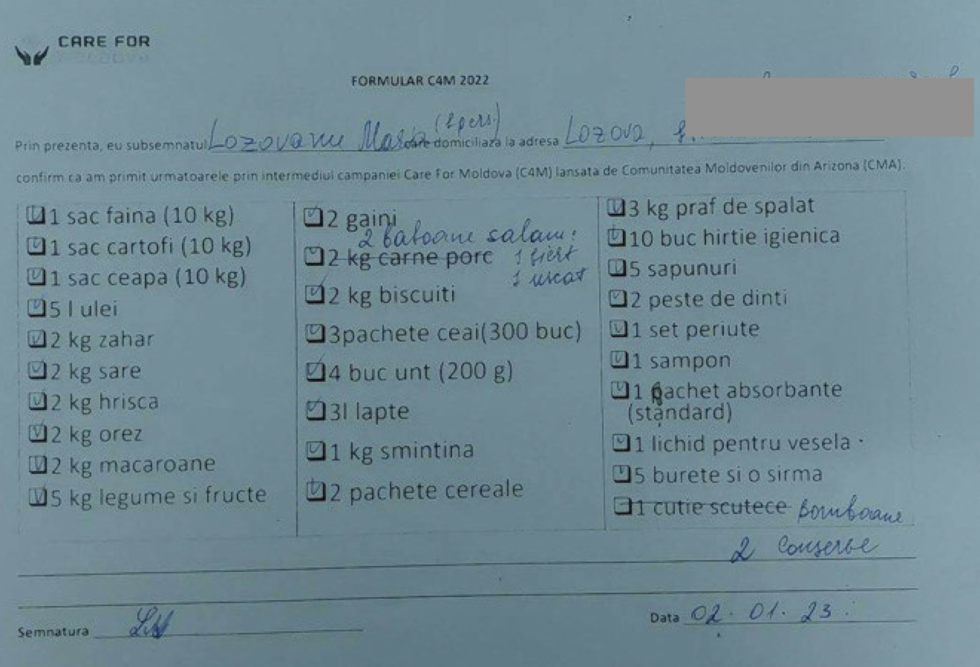 CARE FOR
MOLDOVA
FORMULAR C4M 2022
(2 pers.)
Prin prezenta, eu subsemnatul Lozovanu Maria domiciliaza la adresa Lozova,
confirm ca am primit urmatoarele prin intermediul campaniei Care For Moldova (C4M) lansata de Comunitatea Moldovenilor din Arizona (CMA).
1 sac faina (10 kg)
1 sac cartofi (10 kg)
1 sac ceapa (10 kg)
5 l ulei
2 kg zahar
2 kg sare
2 kg hrisca
2 kg orez
2 kg macaroane
5 kg legume si fructe
2 gaini
2 batoane salam:
2 kg carne porc 1 fiert
1 uscat
2 kg biscuiti
3pachete ceai(300 buc)
4 buc unt (200 g)
3l lapte
1 kg smintina
2 pachete cereale
3 kg praf de spalat
10 buc hirtie igienica
5 sapunuri
2 peste de dinti
1 set periute
1 sampon
1 pachet absorbante
(standard)
1 lichid pentru vesela
5 burete si o sirma
1 cutie scutece bomboane
2 conserve
Semnatura
Data 02.01.23.